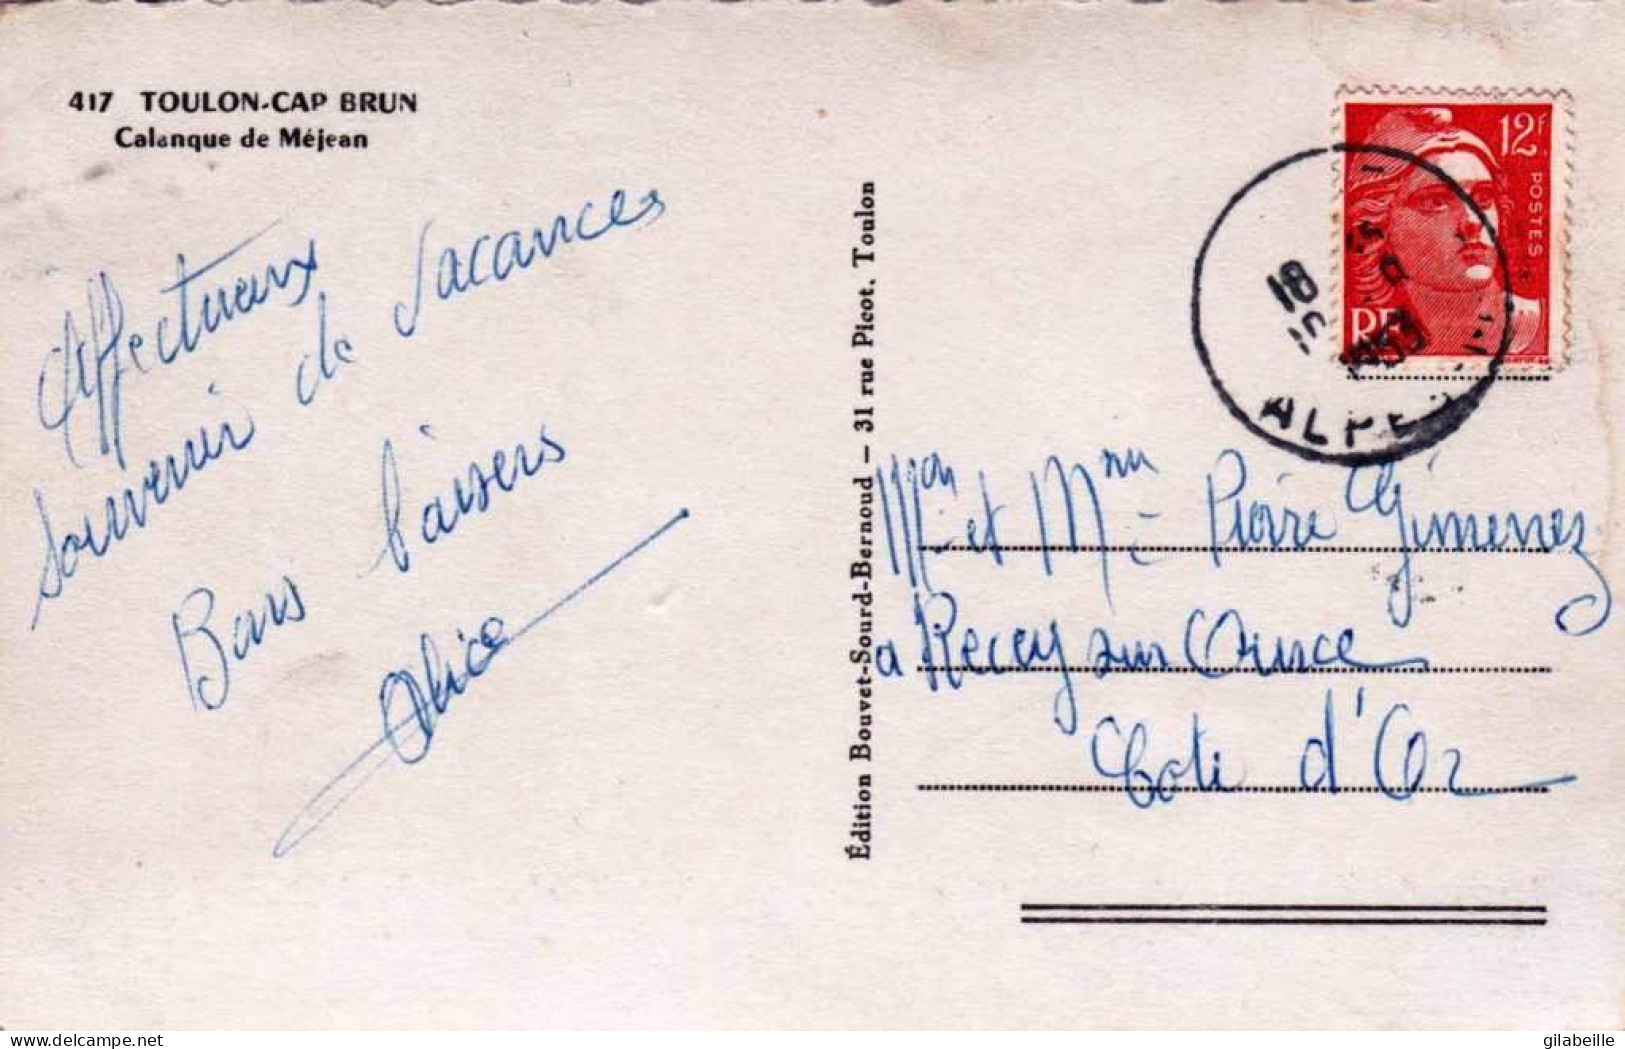 417 TOULON-CAP BRUN
Calanque de Méjean
Affectueux
souvenir de vacances
Bons baisers
Alice
Édition Bouvet-Sourd-Bernoud — 31 rue Picot, Toulon
12F
POSTES
RF
18
1953
ALPES
Mon et Mme Pierre Gimenez
a Recey sur Ource
Cote d'Or
delcampe.net
gilabeille